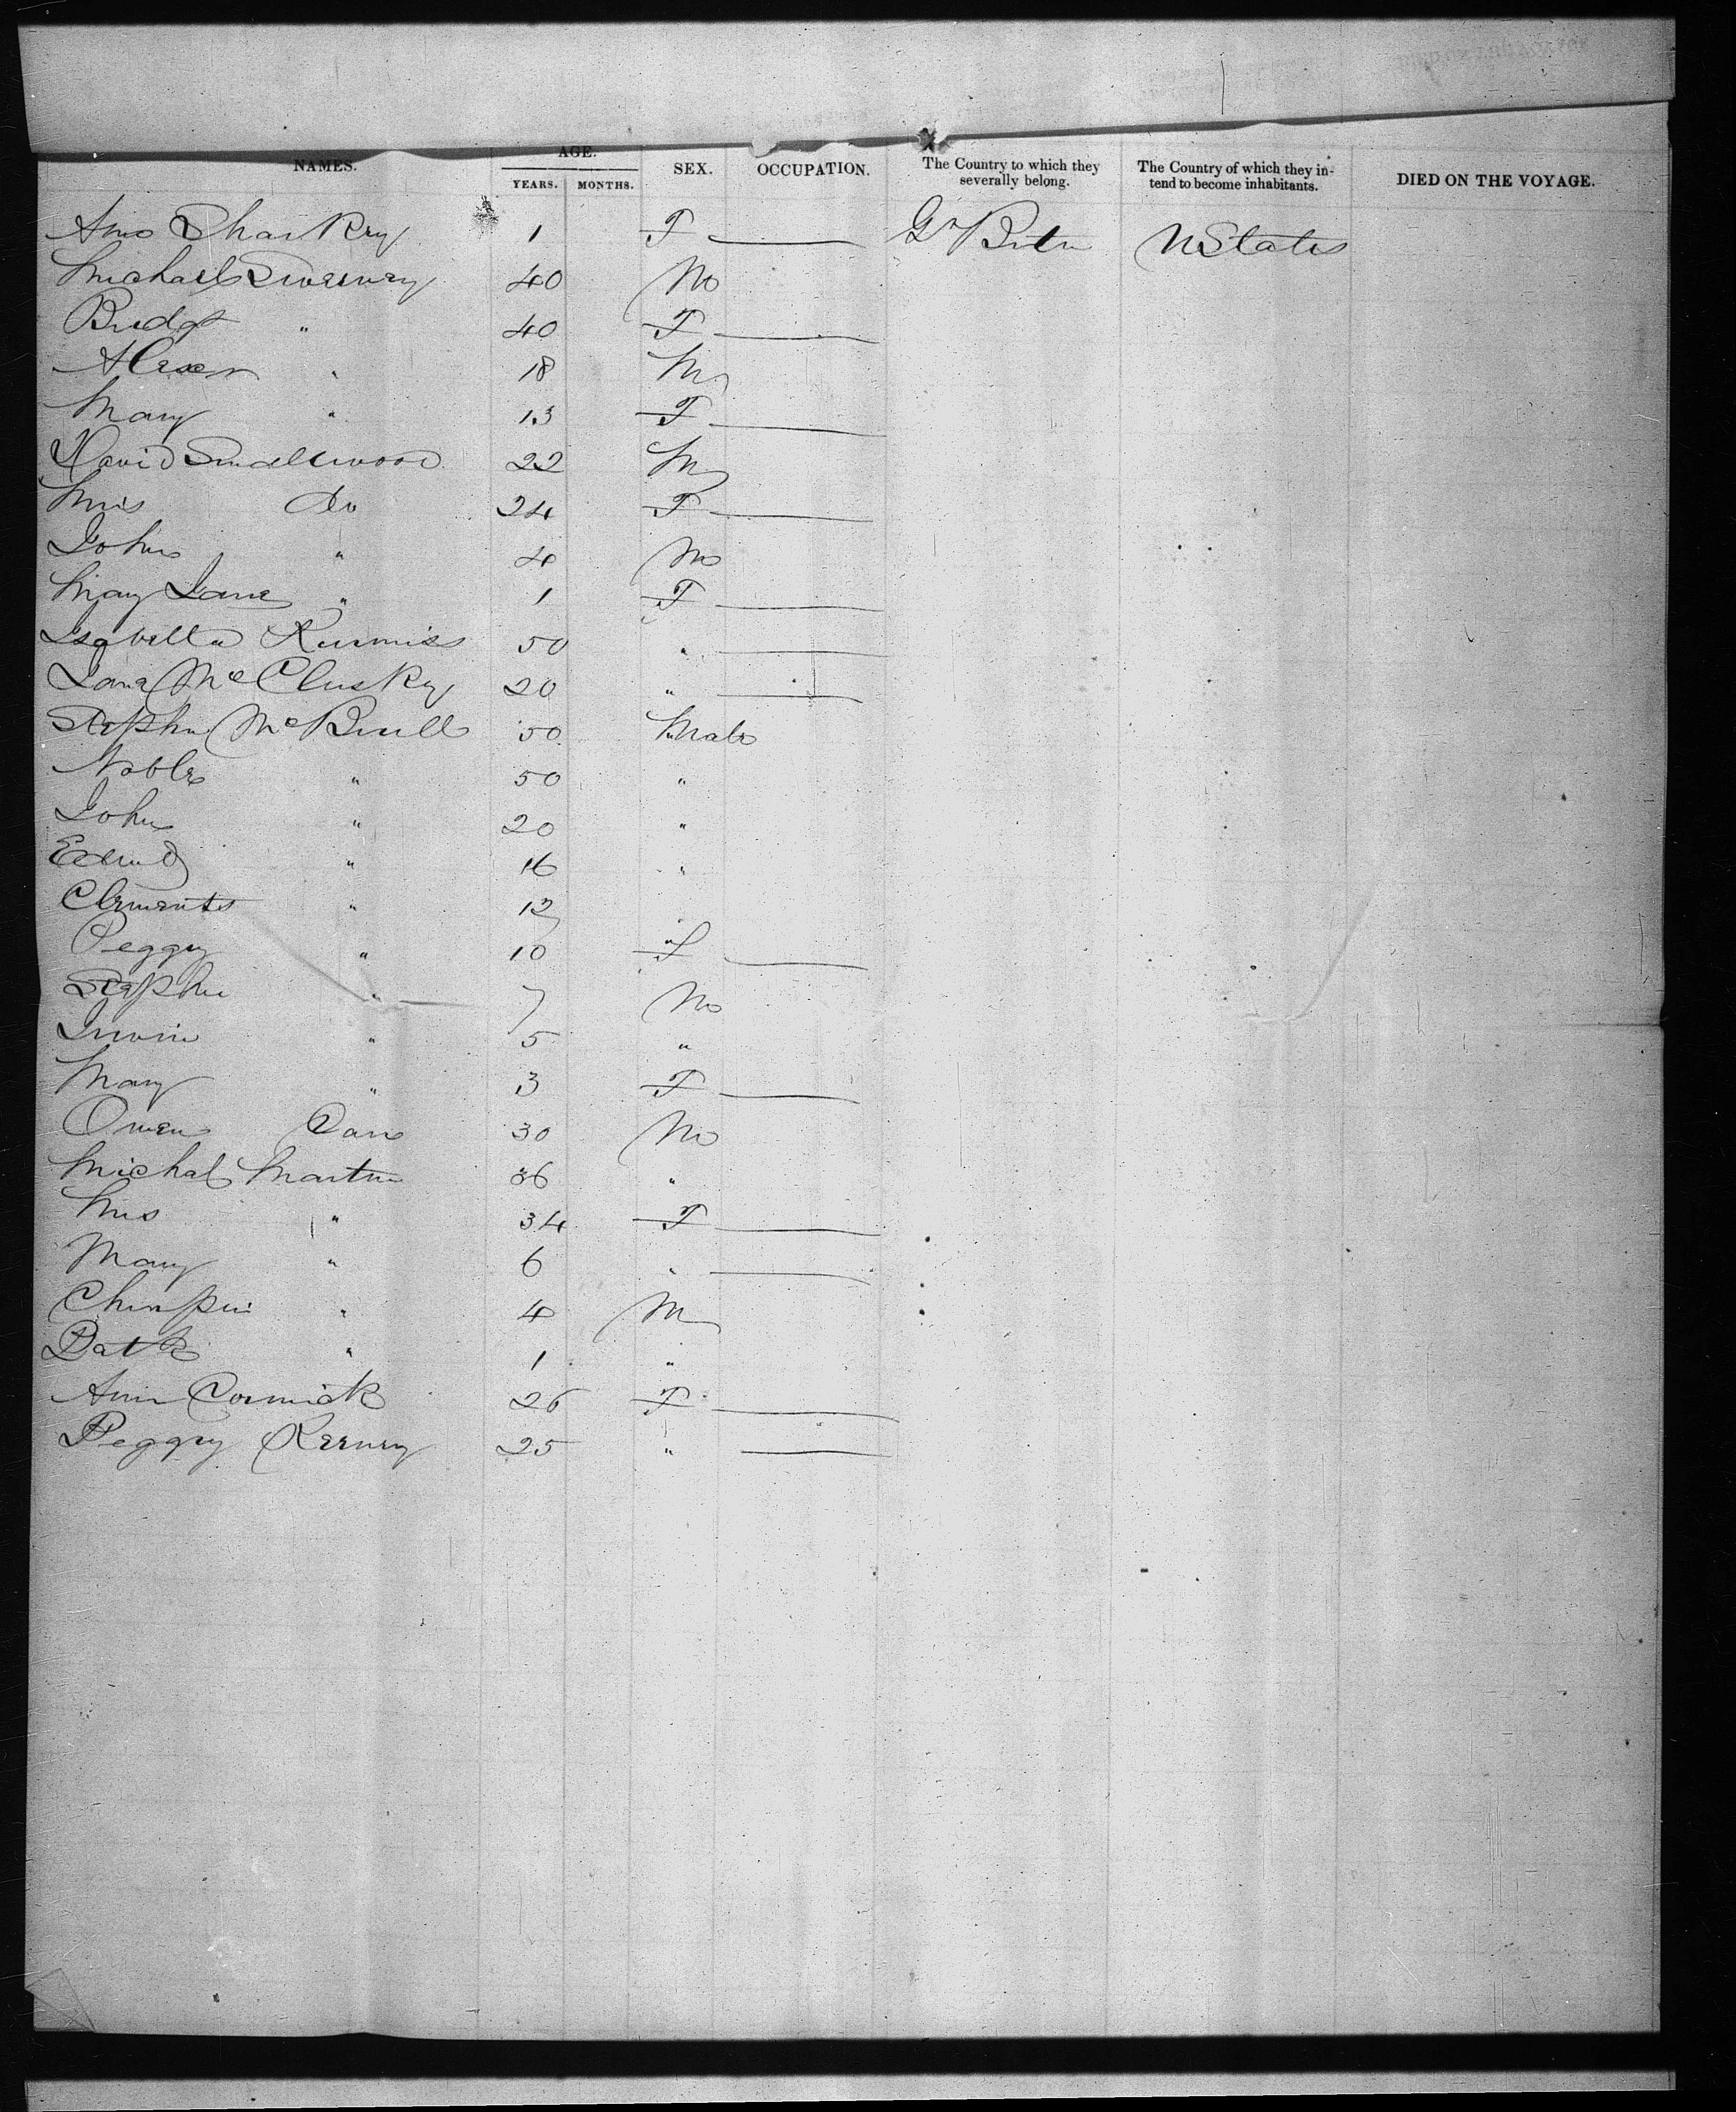 NAMES. AGE. YEARS. MONTHS. SEX. OCCUPATION. The Country to which they severally belong. The Country of which they intend to become inhabitants. DIED ON THE VOYAGE.
Ann Sharkey 1 F Gr Britn U States
Michael Sweeney 40 M
Bridgt " 40 F
Alexr " 18 M
Mary " 13 F
David Smallwood 22 M
Mrs Do 24 F
John " 4 M
Mary Jane " 1 F
Isabella 50 "
Jane McClusky 20 "
Stephn McBrull 50 Male
Noble " 50 "
John " 20 "
Edmd " 16 "
Clements " 12 "
Peggy " 10 F
Stephn " 7 M
Irwin " 5 "
Mary " 3 F
Owen 30 M
Michal Martin 36 "
Mrs " 34 F
Mary " 6 "
" 4 M
Patk " 1 "
Ann Cormick 26 F
Peggy Kerney 25 "